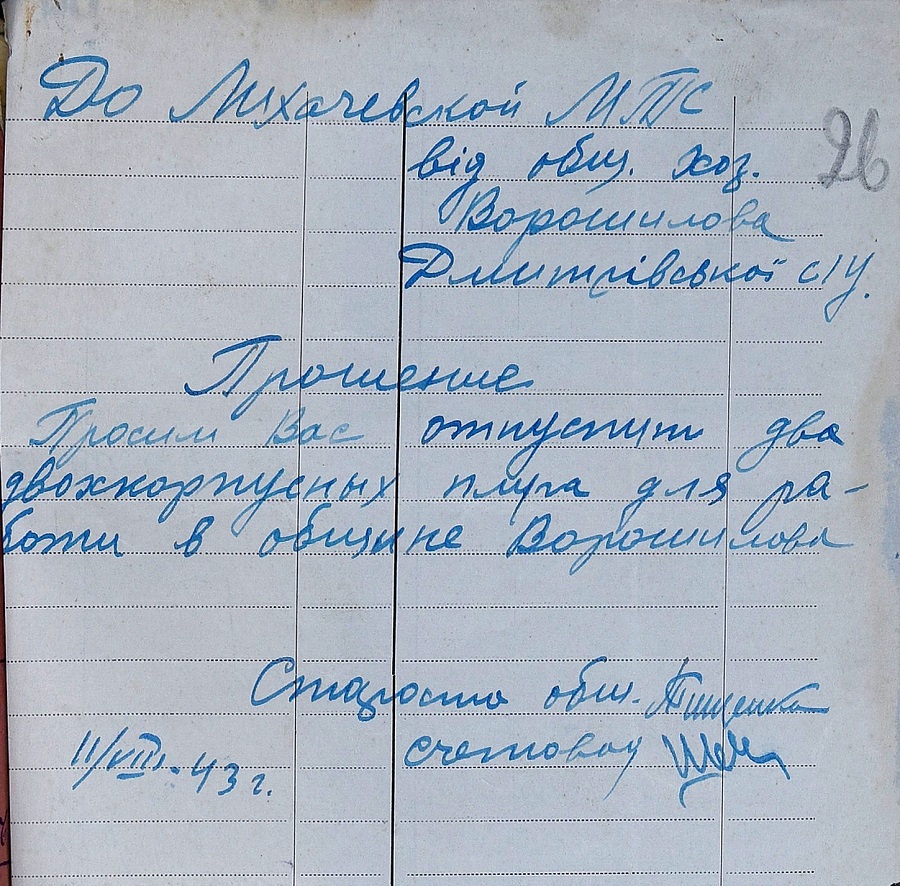 До Лихачевской МТС
від общ. хоз.
26
Ворошилова
Дмитрівської с/у.
Прошение
Просим Вас отпустит два
двохкорпусных плуга для ра-
боти в общине Ворошилова
Староста общ.
счетовод
11/VIII-43 г.